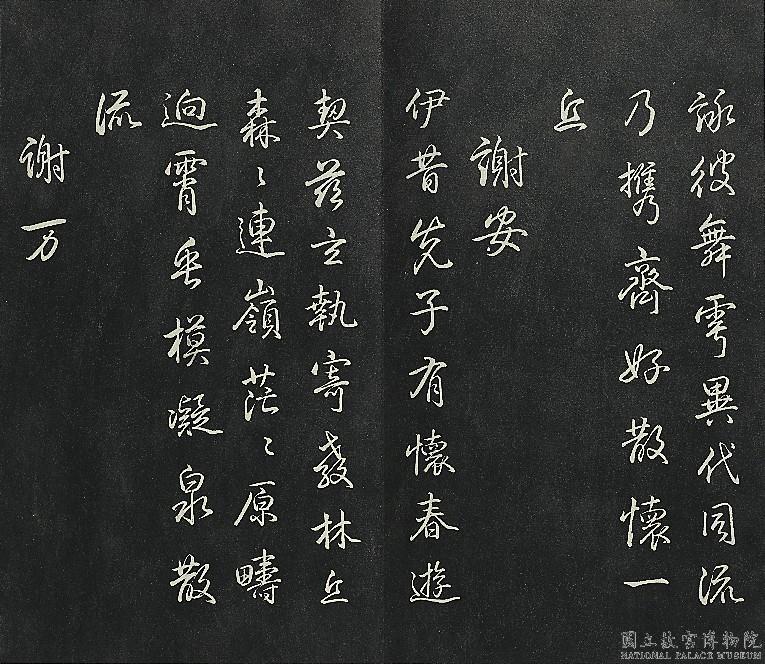 詠彼舞雩異代同流
乃携齊好散懷一
丘
謝安
伊昔先子有懷春遊
契茲言執寄敖林丘
森〻連嶺茫〻原疇
逈霄垂模凝泉散
流
謝万
國立故宮博物院
NATIONAL PALACE MUSEUM